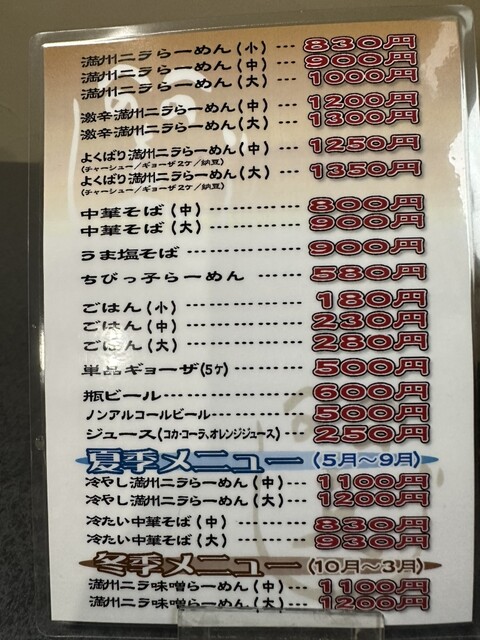 満州ニラらーめん(小) --- 830円
満州ニラらーめん(中) --- 900円
満州ニラらーめん(大) --- 1000円
激辛満州ニラらーめん(中) --- 1200円
激辛満州ニラらーめん(大) --- 1300円
よくばり満州ニラらーめん(中) --- 1250円
(チャーシュー/ギョーザ2ケ/納豆)
よくばり満州ニラらーめん(大) --- 1350円
(チャーシュー/ギョーザ2ケ/納豆)
中華そば(中) --- 800円
中華そば(大) --- 900円
うま塩そば --- 900円
ちびっ子らーめん --- 580円
ごはん(小) --- 180円
ごはん(中) --- 230円
ごはん(大) --- 280円
単品ギョーザ(5ケ) --- 500円
瓶ビール --- 600円
ノンアルコールビール --- 500円
ジュース(コカ・コーラ、オレンジジュース) --- 250円
夏季メニュー(5月〜9月)
冷やし満州ニラらーめん(中) --- 1100円
冷やし満州ニラらーめん(大) --- 1200円
冷たい中華そば(中) --- 830円
冷たい中華そば(大) --- 930円
冬季メニュー(10月〜3月)
満州ニラ味噌らーめん(中) --- 1100円
満州ニラ味噌らーめん(大) --- 1200円